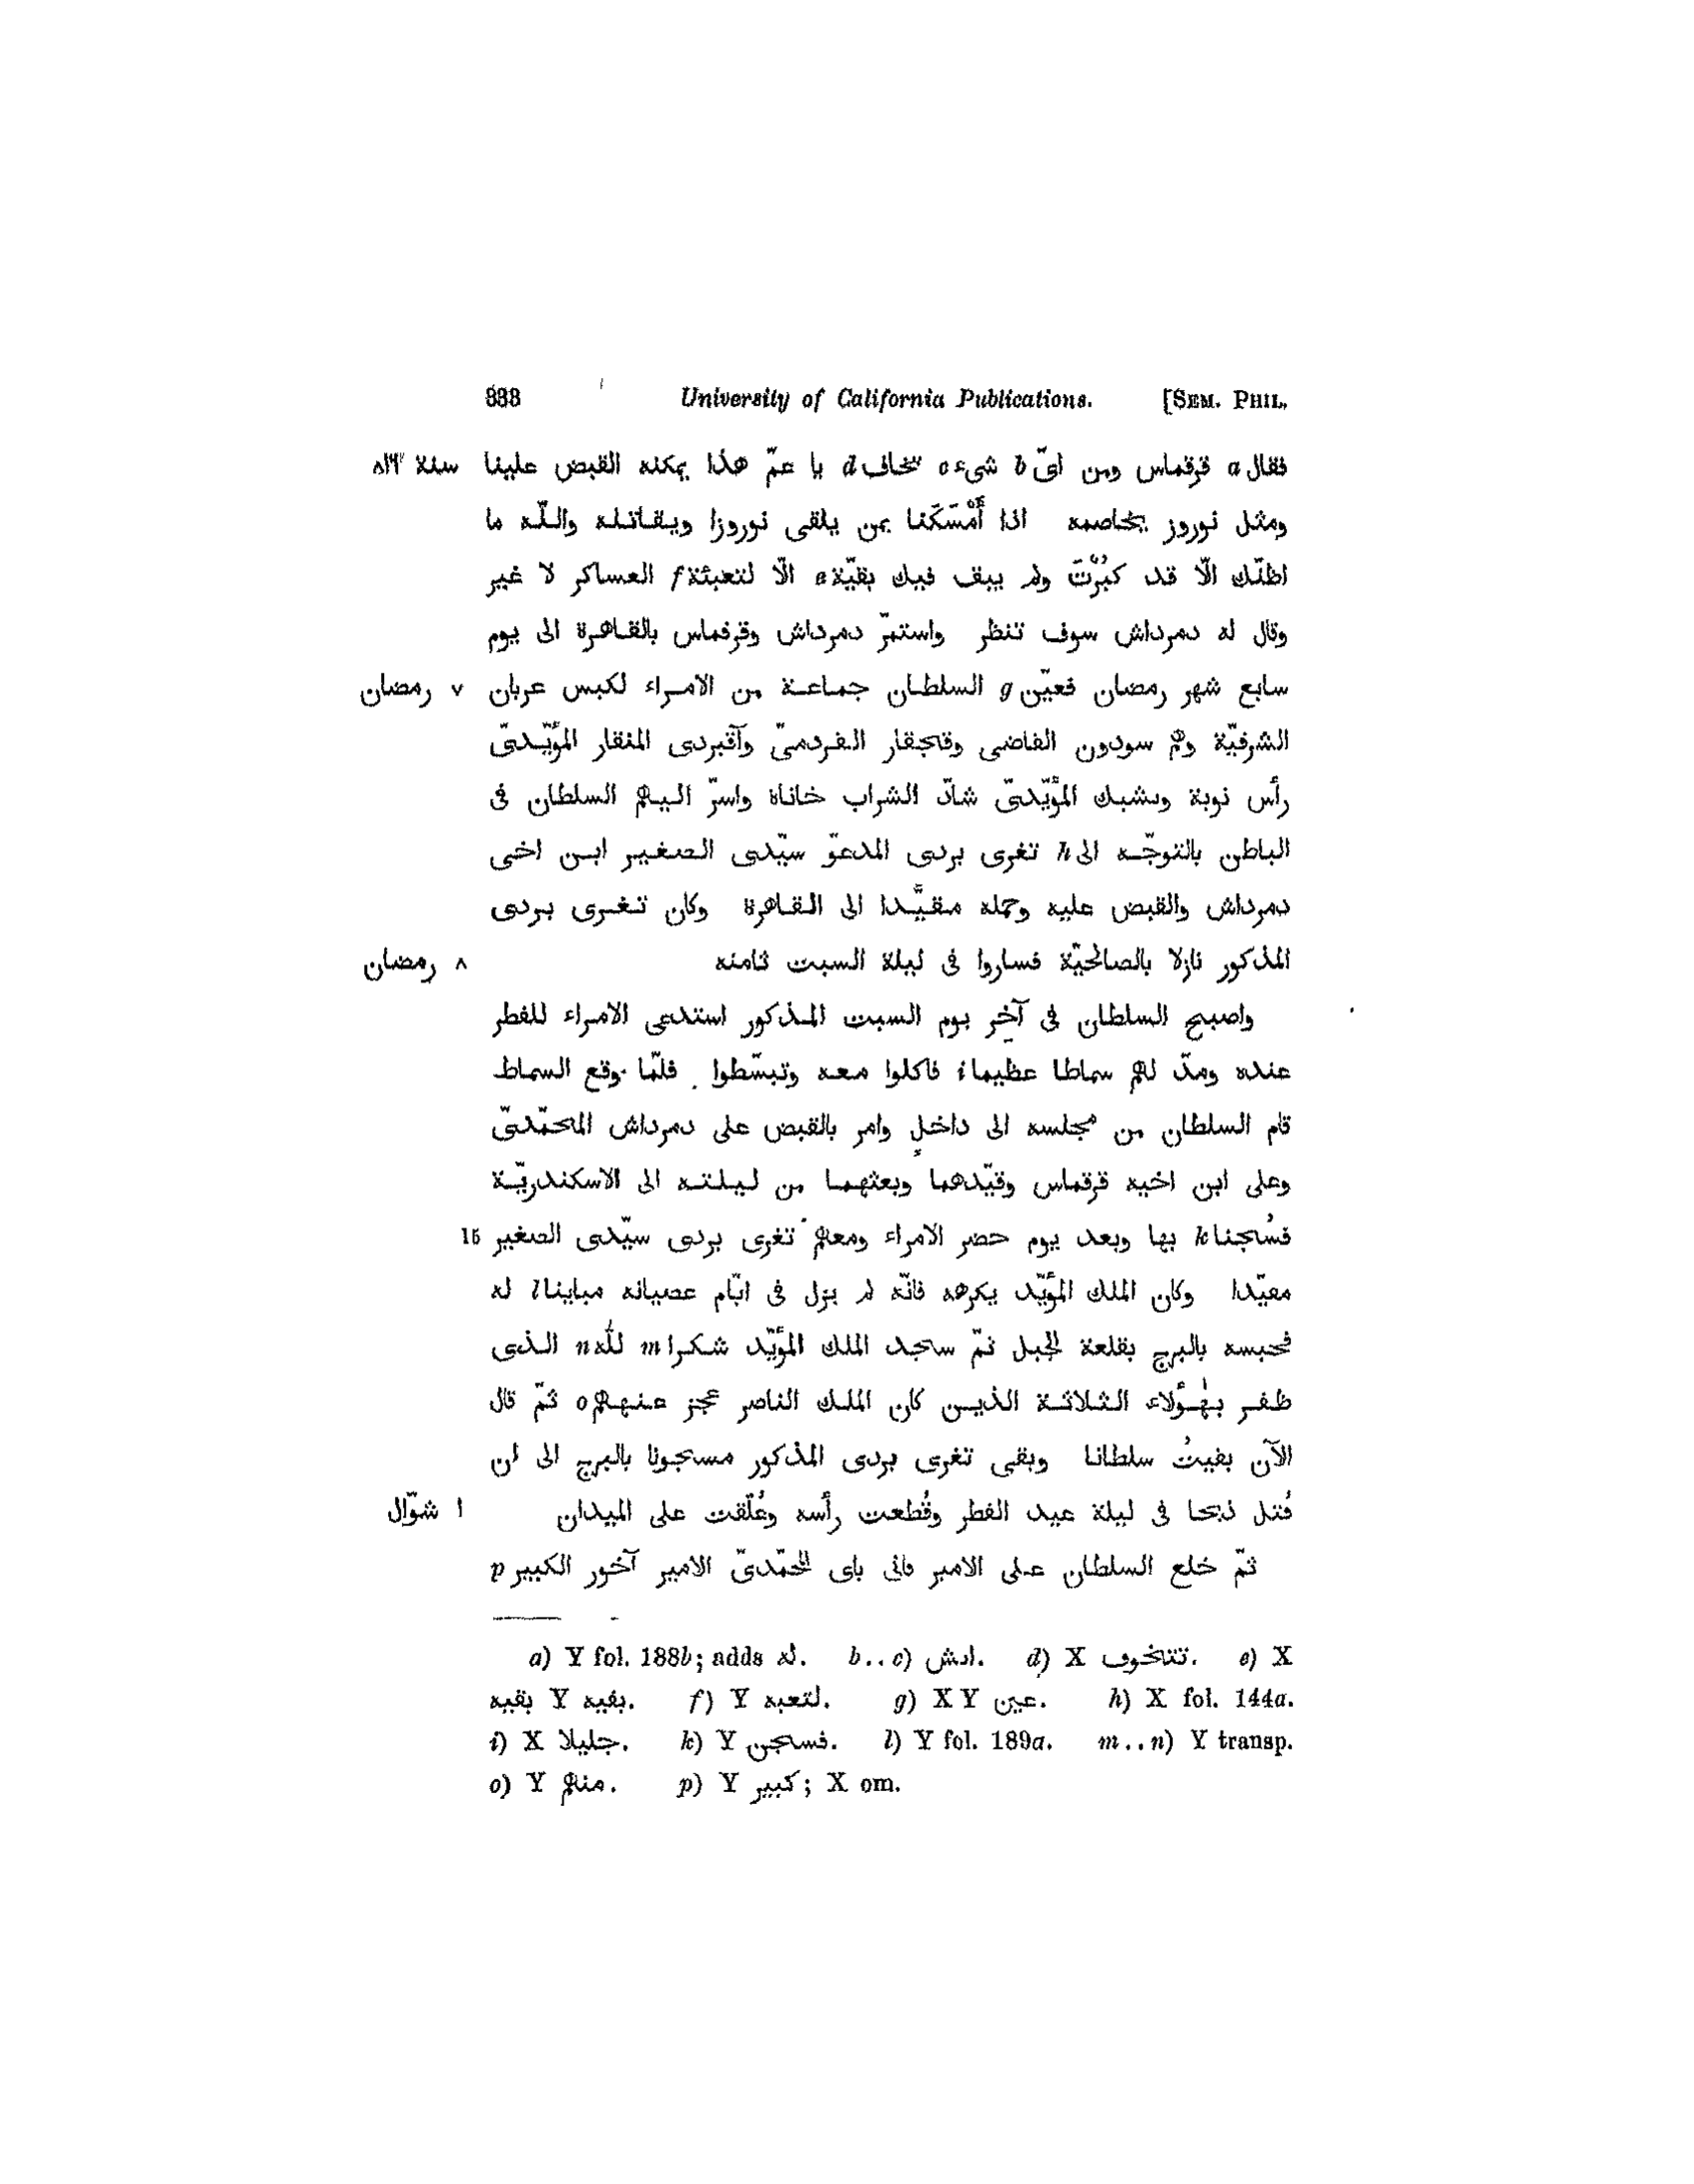 338 University of California Publications. [SEM. PHIL.
فقال a قرقماس ومن اىّ b شىء c تخاف d يا عمّ هذا يمكنه القبض علينا سنة ٨١٦
ومثل نوروز يخاصمه اذا أَمْسَكَنا بمن يلقى نوروزا ويقاتله واللّه ما
اظنّك الّا قد كَبُرْتَ ولم يبق فيك بقيّة e الّا لتعبئة f العساكر لا غير
وقال له دمرداش سوف تنظر واستمرّ دمرداش وقرقماس بالقاهرة الى يوم
سابع شهر رمضان فعيّن g السلطان جماعة من الامراء لكبس عربان ٧ رمضان
الشرقيّة وهم سودون القاضى وقجقار القردمىّ وآقبردى المنقار المؤيّدىّ
رأس نوبة ويشبك المؤيّدىّ شادّ الشراب خاناة واسرّ اليهم السلطان فى
الباطن بالتوجّه الى h تغرى بردى المدعوّ سيّدى الصغير ابن اخى
دمرداش والقبض عليه وحمله مقيَّدا الى القاهرة وكان تغرى بردى
المذكور نازلا بالصالحيّة فساروا فى ليلة السبت ثامنه ٨ رمضان
واصبح السلطان فى آخِر يوم السبت المذكور استدعى الامراء للفطر
عنده ومدّ لهم سماطا عظيما i فاكلوا معه وتبسّطوا فلمّا وقع السماط
قام السلطان من مجلسه الى داخلٍ وامر بالقبض على دمرداش المحمّدىّ
وعلى ابن اخيه قرقماس وقيّدهما وبعثهما من ليلته الى الاسكندريّة
فسُجنا k بها وبعد يوم حضر الامراء ومعهم تغرى بردى سيّدى الصغير 15
مقيّدا وكان الملك المؤيّد يكرهه فانّه لم يزل فى ايّام عصيانه مباينا l له
فحبسه بالبرج بقلعة الجبل ثمّ سجد الملك المؤيّد شكرا m للّه n الذى
ظفر بهٰؤلاء الثلاثة الذين كان الملك الناصر عجز عنهم o ثمّ قال
الآن بقيتُ سلطانا وبقى تغرى بردى المذكور مسجونا بالبرج الى ان
قُتل ذبحا فى ليلة عيد الفطر وقُطعت رأسه وعُلّقت على الميدان ١ شوّال
ثمّ خلع السلطان على الامير قانى باى المحمّدىّ الامير آخور الكبير p
a) Y fol. 188b; adds له. b..c) ادش. d) X تتخوف. e) X
بقيه Y بفيه. f) Y لتعبه. g) X Y عين. h) X fol. 144a.
i) X جليلا. k) Y فسجن. l) Y fol. 189a. m..n) Y transp.
o) Y منهم. p) Y كبير; X om.